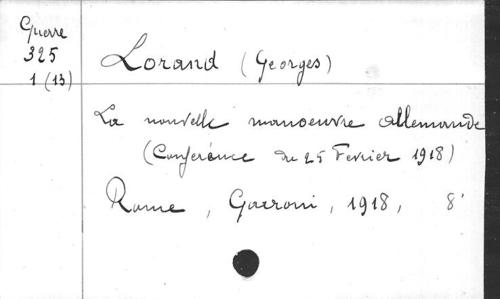 Guerre
325
1 (13)
Lorand (Georges)
La nouvelle manoeuvre allemande
(Conférence du 25 Fevrier 1918)
Rome, Garroni, 1918, 8°